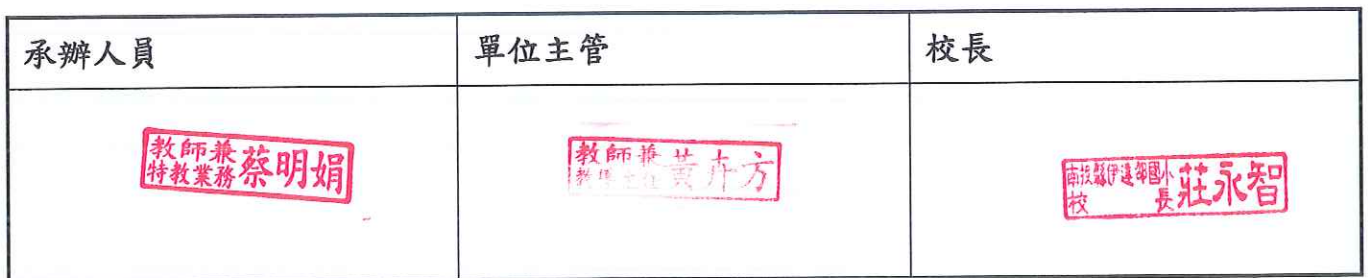 承辦人員
單位主管
校長
教師兼
特教業務
蔡明娟
教師兼
教學主任
黃卉方
南投縣伊達邵國小
校長
莊永智